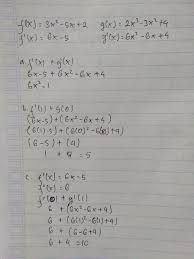 f(x) = 3x² - 5x + 2    g(x) = 2x³ - 3x² + 4
f'(x) = 6x - 5    g'(x) = 6x² - 6x + 4
a. f'(x) + g'(x)
6x - 5 + 6x² - 6x + 4
6x² - 1
b. f'(1) + g'(0)
(6x - 5) + (6x² - 6x + 4)
(6(1) - 5) + (6(0)² - 6(0) + 4)
(6 - 5) + (4)
1 + 4 = 5
c. f'(x) = 6x - 5
f''(x) = 6
f''(0) + g'(1)
6 + (6x² - 6x + 4)
6 + (6(1)² - 6(1) + 4)
6 + (6 - 6 + 4)
6 + 4 = 10